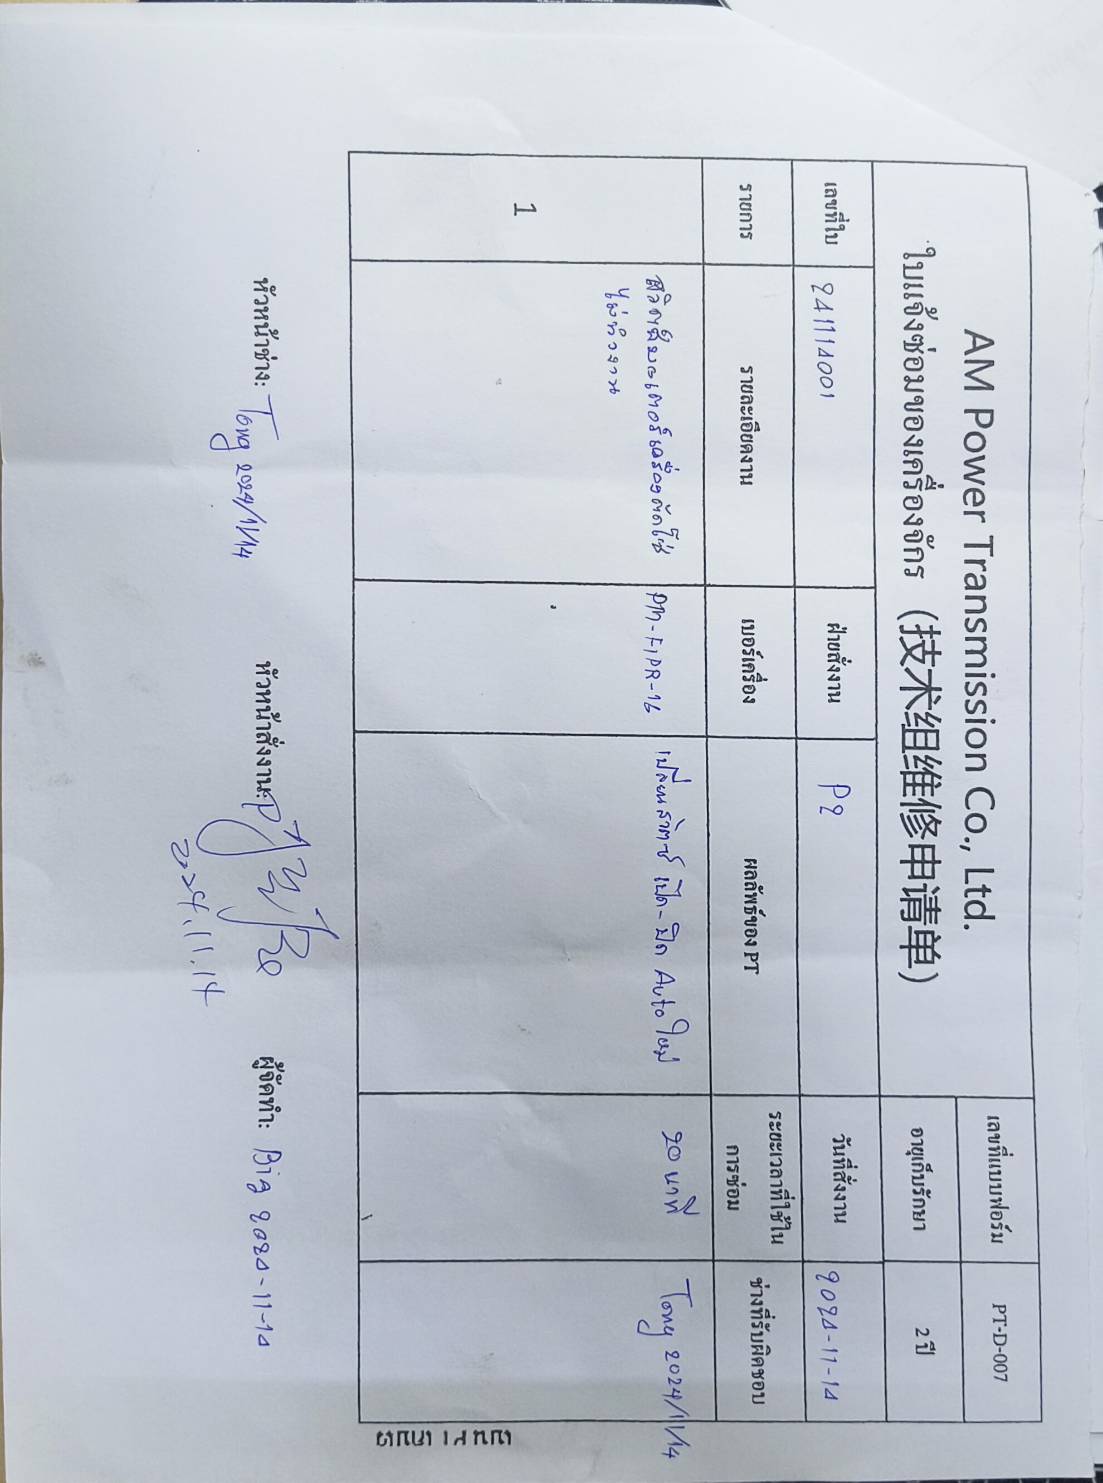 AM Power Transmission Co., Ltd.
ใบแจ้งซ่อมของเครื่องจักร (技术组维修申请单)
เลขที่แบบฟอร์ม PT-D-007
อายุเก็บรักษา 2 ปี
เลขที่ใบ 241114001 ฝ่ายสั่งงาน P2 วันที่สั่งงาน 2024-11-14
รายการ รายละเอียดงาน เบอร์เครื่อง ผลลัพธ์ของ PT ระยะเวลาที่ใช้ใน ช่างที่รับผิดชอบ
การซ่อม
1 เครื่องตัดโซ่ PM-FIPR-16 เปลี่ยนสวิตซ์ เปิด-ปิด Auto ใหม่ 20 นาที Tong 2024/11/14
ไม่ทำงาน
หัวหน้าช่าง: Tong 2024/11/14 หัวหน้าสั่งงาน: ผู้จัดทำ: Big 2024-11-14
2024.11.14